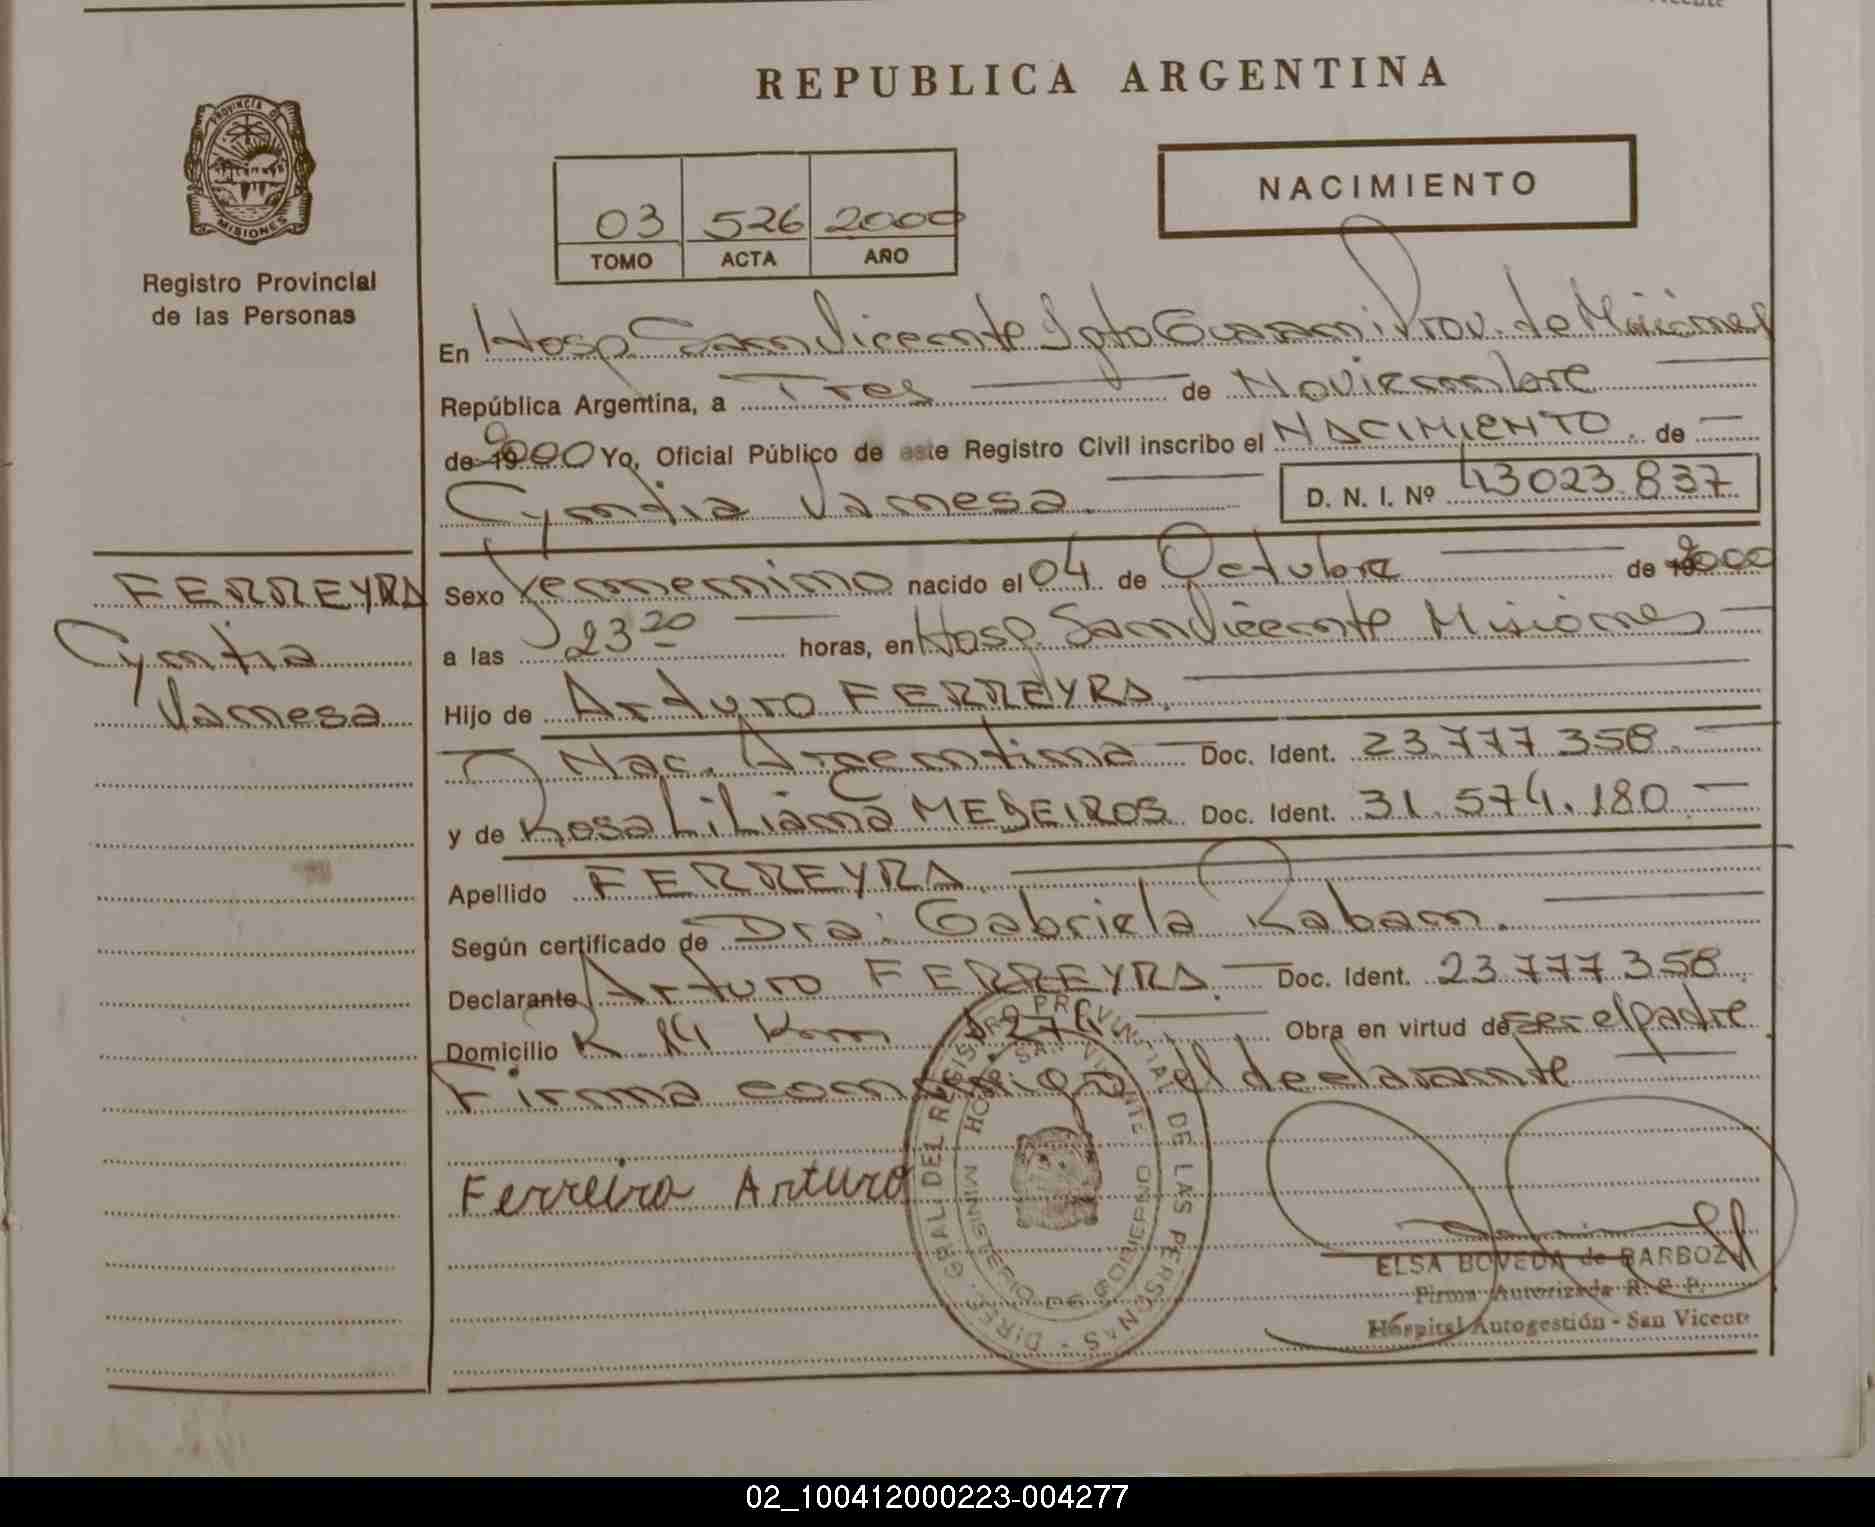 REPUBLICA ARGENTINA
PROVINCIA DE
MISIONES
Registro Provincial
de las Personas
NACIMIENTO
03 526 2000
TOMO ACTA AÑO
En Hosp. San Vicente Dpto Guarani Prov. de Misiones
República Argentina, a Tres de Noviembre
de 2000 Yo, Oficial Público de este Registro Civil inscribo el NACIMIENTO de
Cyntia Vanesa. D. N. I. Nº 43023.837
FERREYRA
Cyntia
Vanesa
Sexo Femenino nacido el 04 de Octubre de 2000
a las 23 20 horas, en Hosp. San Vicente Misiones
Hijo de Arturo FERREYRA.
Nac. Argentina Doc. Ident. 23.777.358.
y de Rosa Liliana MEDEIROS Doc. Ident. 31.574.180
Apellido FERREYRA
Según certificado de Dra: Gabriela Raban.
Declarante Arturo FERREYRA. Doc. Ident. 23.777.358
Domicilio K 14 Km Obra en virtud de ser el padre
Firma conmigo el declarante
Ferreira Arturo
DIREC. GRAL. DEL REGISTRO PROVINCIAL DE LAS PERSONAS
HOSP. SAN VICENTE
MINISTERIO DE GOBIERNO
ELSA BOVEDA de BARBOZA
Firma Autorizada R. P. P.
Hospital Autogestión - San Vicente
02_100412000223-004277